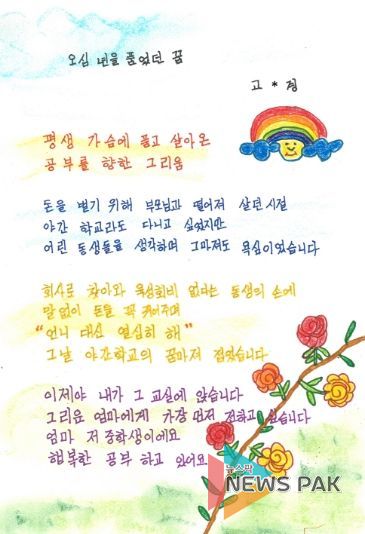 오십 년을 품었던 꿈
고 * 정
평생 가슴에 품고 살아온
공부를 향한 그리움
돈을 벌기 위해 부모님과 떨어져 살던 시절
야간 학교라도 다니고 싶었지만
어린 동생들을 생각하며 그마저도 욕심이었습니다
회사로 찾아와 육성회비 없다는 동생의 손에
말없이 돈을 꼭 쥐어주며
"언니 대신 열심히 해"
그날 야간학교의 꿈마저 접었습니다
이제야 내가 그 교실에 앉습니다
그리운 엄마에게 가장 먼저 전하고 싶습니다
엄마 저 중학생이에요
행복한 공부 하고 있어요
뉴스팍
NEWS PAK